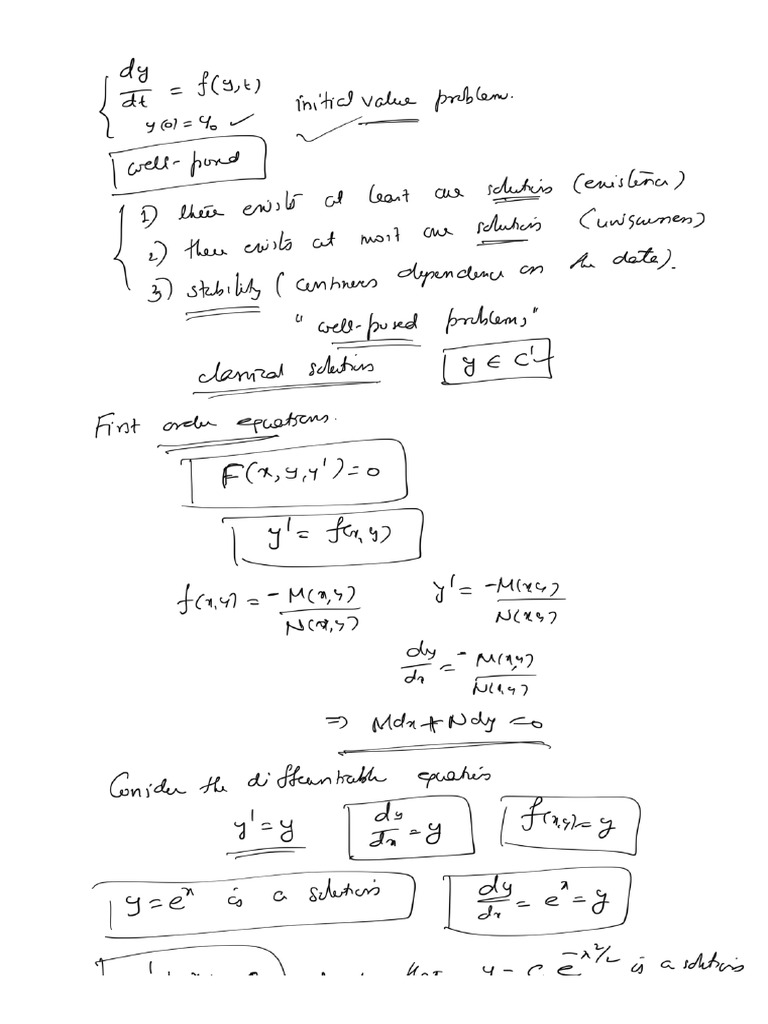 dy/dt = f(y,t)
y(0) = y₀ ✓ initial value problem.
well-posed
1) there exists at least one solution (existence)
2) there exists at most one solution (uniqueness)
3) stability (continuous dependence on the data).
"well-posed problems"
classical solution y ∈ C¹
First order equations.
F(x, y, y') = 0
y' = f(x,y)
f(x,y) = -M(x,y)/N(x,y) y' = -M(x,y)/N(x,y)
dy/dx = -M(x,y)/N(x,y)
⇒ Mdx + Ndy = 0
Consider the differentiable equation
y' = y dy/dx = y f(x,y) = y
y = eˣ is a solution dy/dx = eˣ = y
y = C e^(-x²/2) is a solution